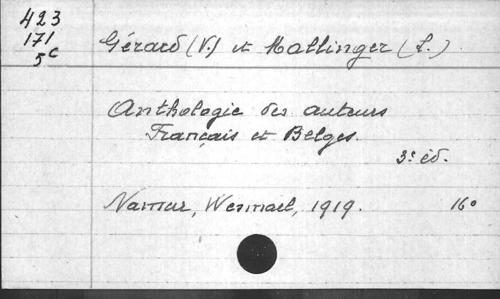 423
171
5c
Gérard (V.) et Mallinger (L.)
Anthologie des auteurs
Français et Belges.
3e éd.
Namur, Wesmael, 1919. 16o